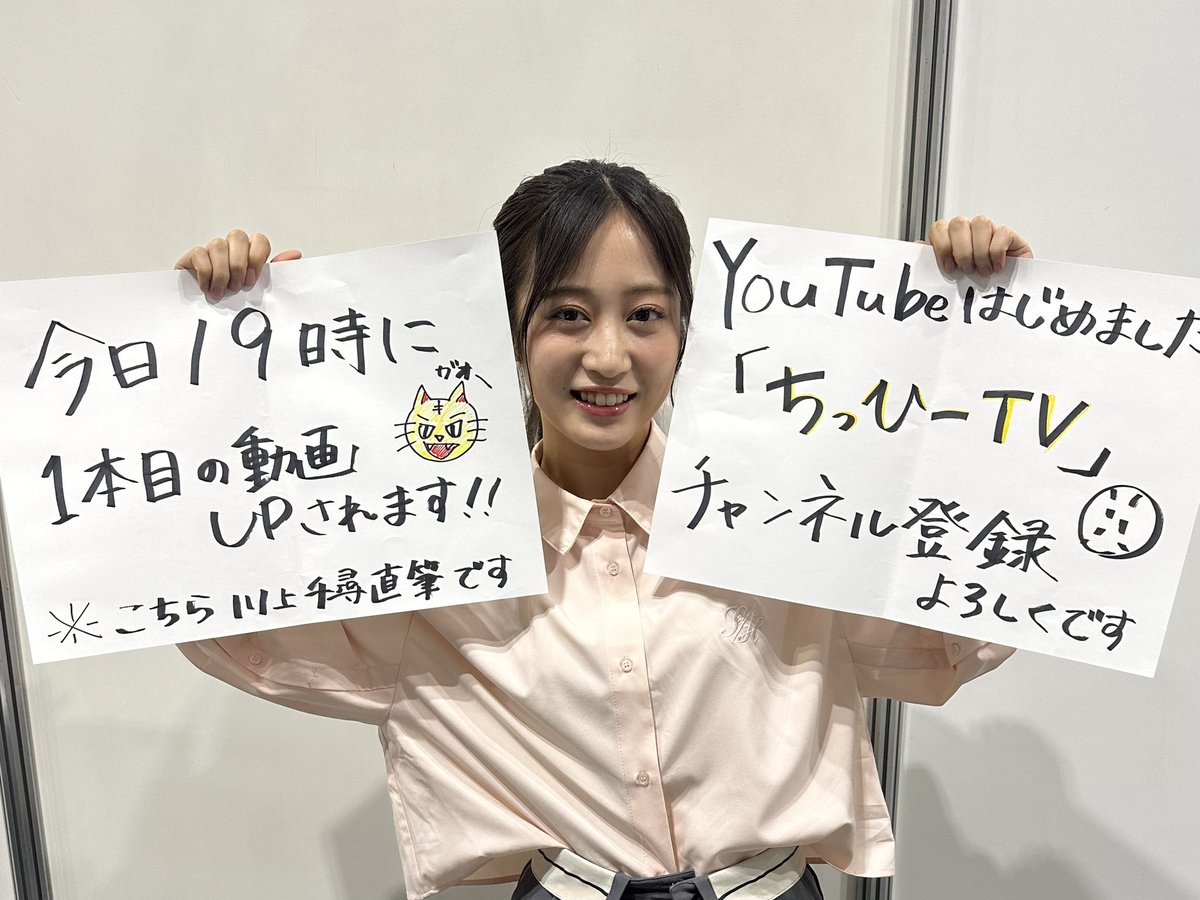 今日19時に
ガオー
1本目の動画
UPされます!!
※こちら川上千尋直筆です
YouTubeはじめました
「ちっひーTV」
チャンネル登録
よろしくです